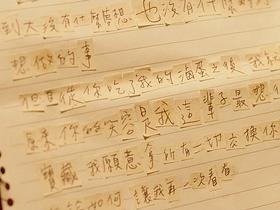 到大沒有什麼夢想 也沒有什
想做的事
但直從你吃了我的滷蛋之後 我
原來你的笑容是我這輩子最想
寶藏 我願意拿所有一切交換你
如何 讓我再一次看看